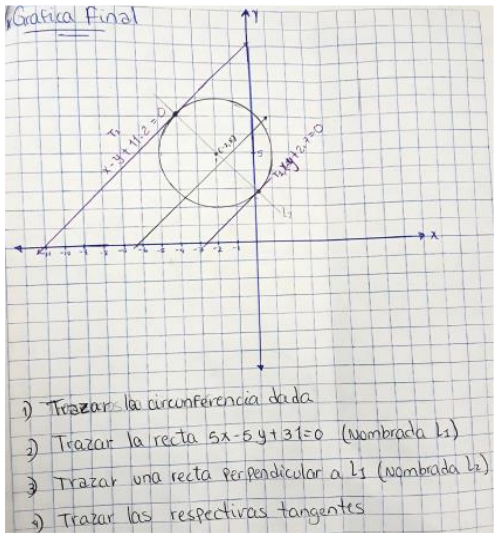 Grafica Final
Y
T₁
x-y+11.2=0
(-2,5)
5
T₂ x-y+2.7=0
L₂
X
-11 -10 -9 -8 -7 -6 -5 -4 -3 -2 -1
1) Trazar la circunferencia dada
2) Trazar la recta 5x-5y+31=0 (Nombrada L₁)
3) Trazar una recta perpendicular a L₁ (Nombrada L₂)
4) Trazar las respectivas tangentes